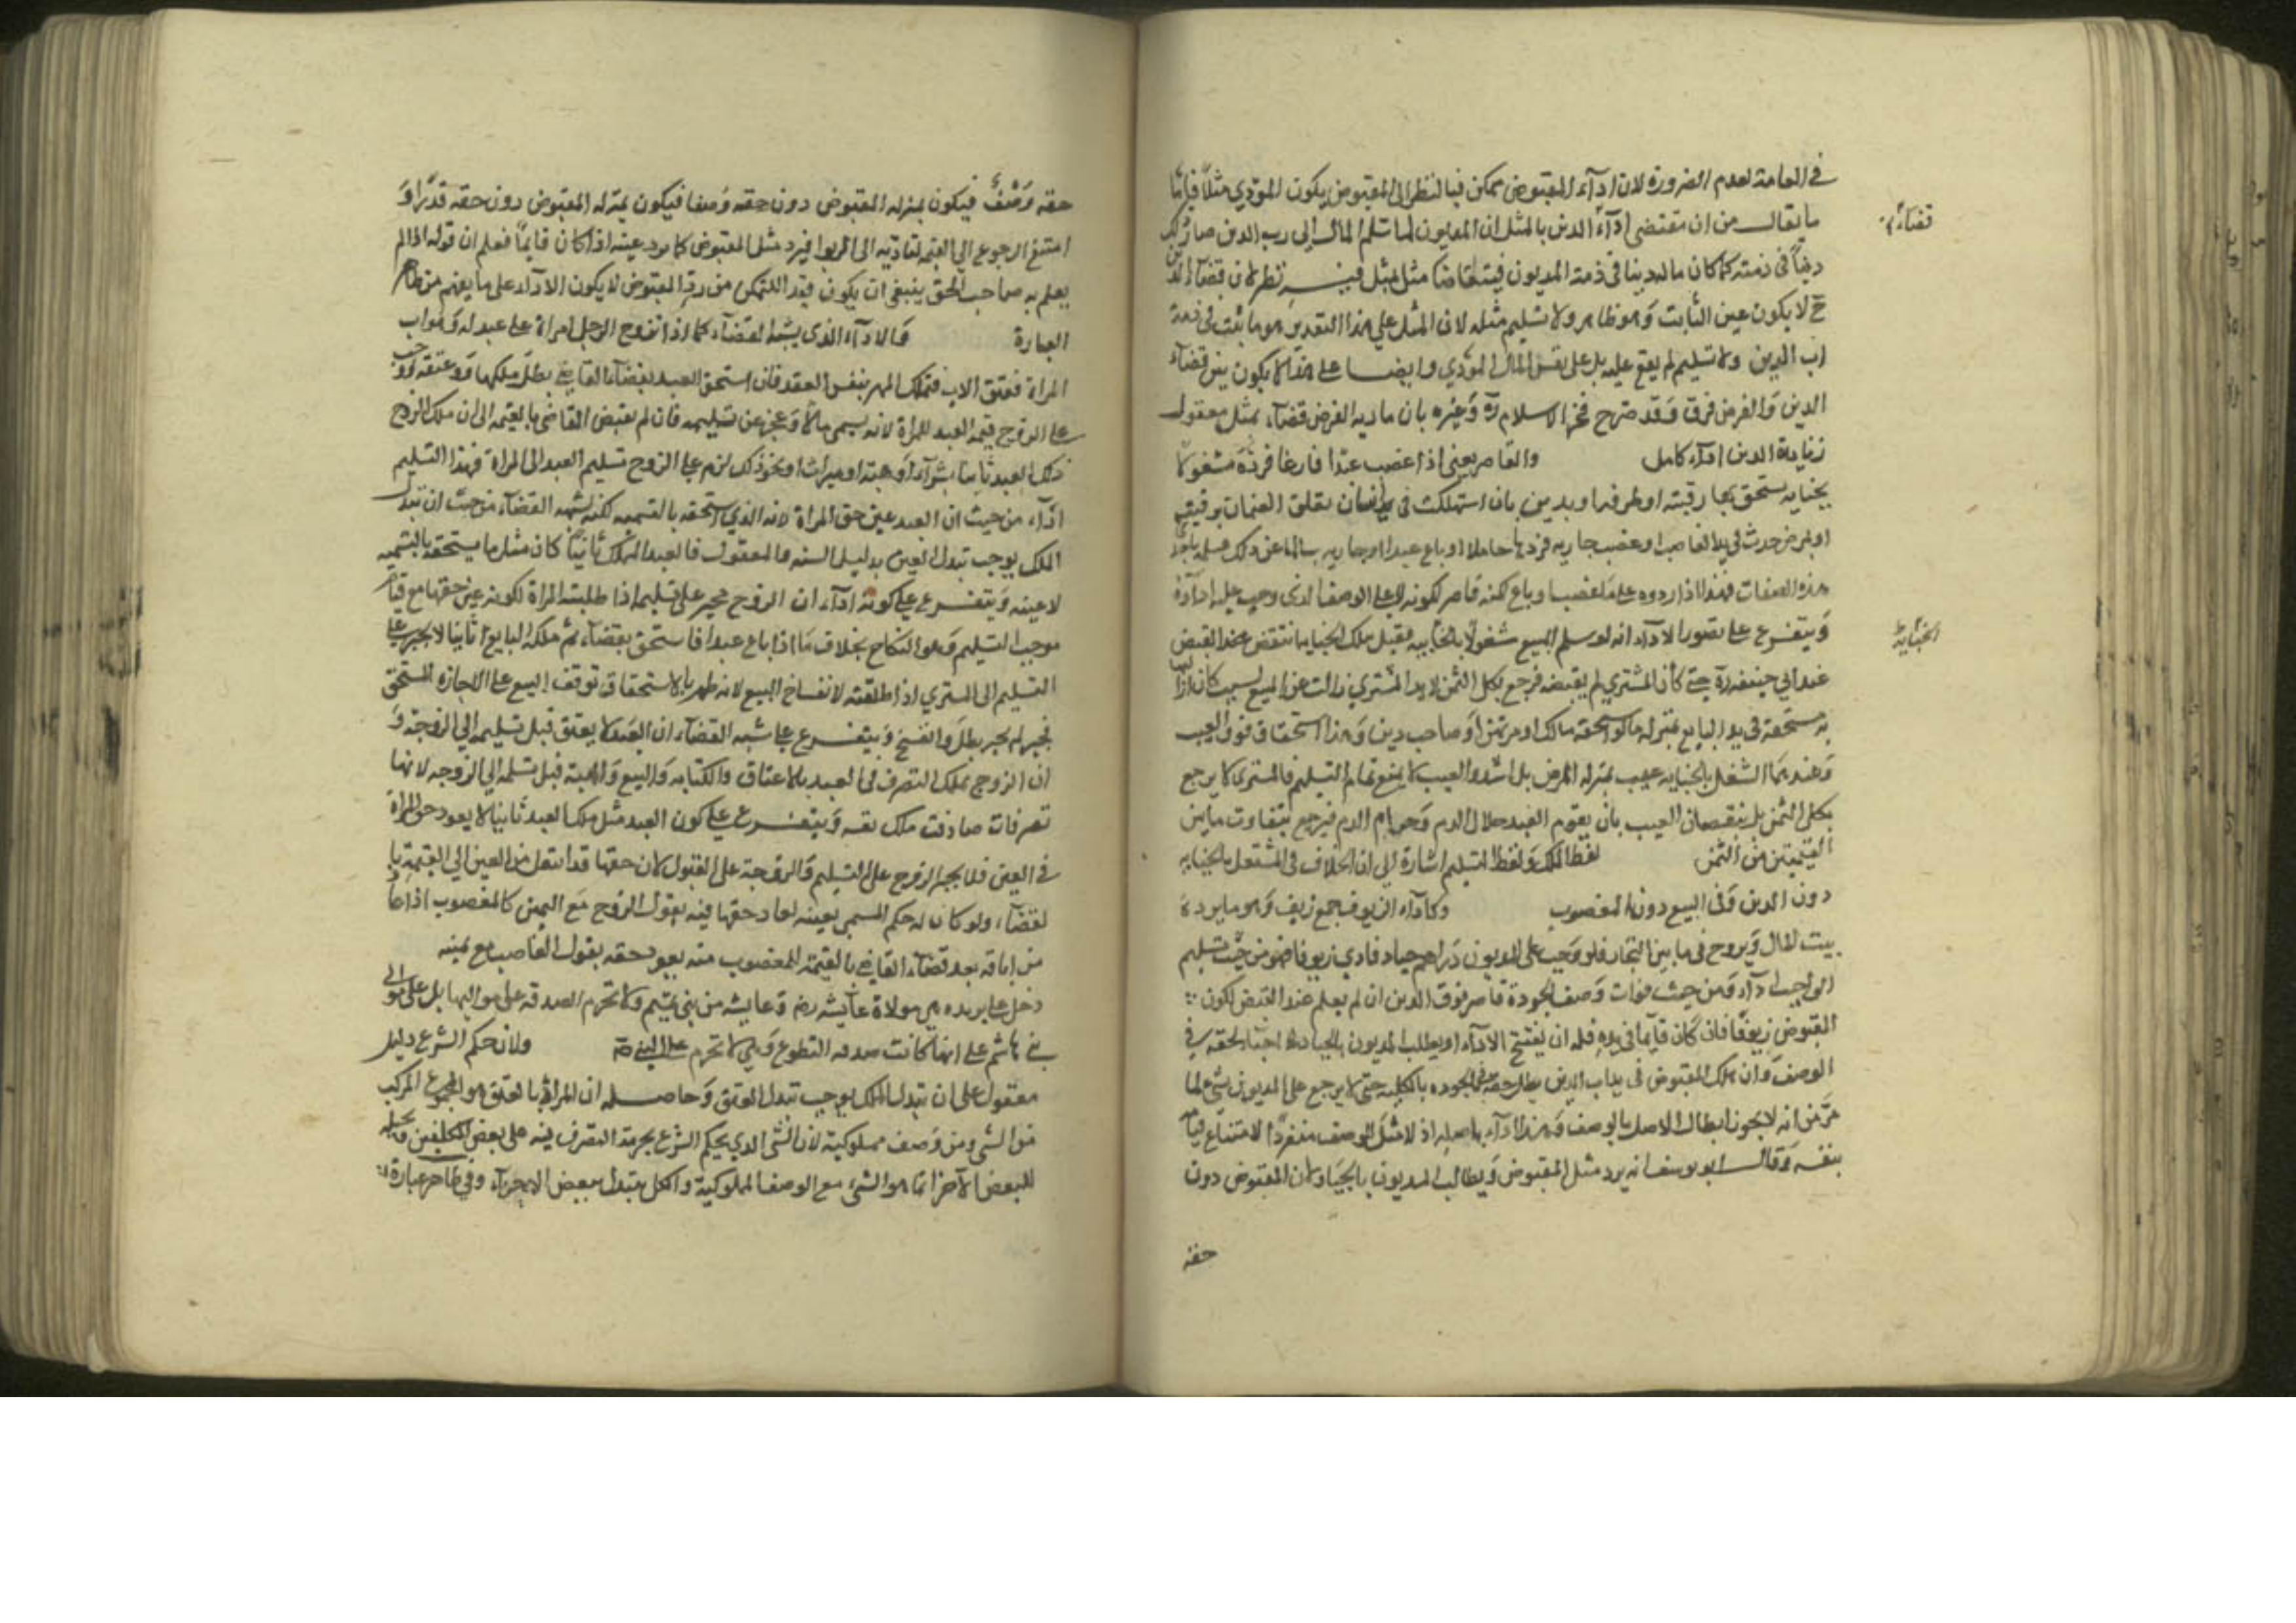 في العامة لعدم الضرورة لان اداء المقبوض ممكن فبالنظر الى المقبوض يكون المؤدي مثلا
ما يقال من ان مقتضى اداء الدين بالمثل ان المديون لما سلم المال الى رب الدين صار ذلك
قضاء
دينا في ذمته كما كان ماله دينا في ذمة المديون فيتقاصا مثل بمثل ففيه نظر لان قضاء الدين
ح لا يكون عين الثابت وهو ظاهر ولا تسليم مثله لان المثل علي هذا التقدير هو ما ثبت في ذمة
رب الدين ولا تسليم لم يقع عليه بل على نفس المال المؤدي وايضا على هذا لا يكون بين قضاء
الدين والقرض فرق وقد صرح فخر الاسلام ره وغيره بان تادية القرض قضاء بمثل معقول
وتادية الدين اداء كامل والقاصر يعني اذا غصب عبدا فارغا فرده مشغولا
بجناية يستحق بها رقبته او طرفه او بدين بان استهلك في يده انسان تعلق الضمان برقبته
او بمرض حدث في يد الغاصب او غصب جارية فردها حاملا او باع عبدا او جارية سالما عن ذلك فسلمه باحد
هذه الصفات فهذا اذا رده على ما غصب او باع لكنه قاصر لكونه لا على الوصف الذي وجب عليه اداؤه
ويتفرع على قصور الاداء انه لو سلم المبيع مشغولا بالجناية فقتل بتلك الجناية انتقض عند القبض
الجناية
عند ابي حنيفة ره حتى كأن المشتري لم يقبضه فرجع بكل الثمن لان يد المشتري زالت عن المبيع بسبب كان ازالتها
به مستحقة في يد البايع بمنزلة ما لو استحقه مالك او مرتهن او صاحب دين وهذا استحقاق فوق العيب
وعندهما الشغل بالجناية عيب بمنزلة المرض بل اشد والعيب لا يمنع تمام التسليم فالمشتري لا يرجع
بكل الثمن بل بنقصان العيب بان يقوم العبد حلال الدم وحرام الدم فيرجع بتفاوت ما بين
القيمتين من الثمن لفظ الملك ولفظ التسليم اشارة الى ان الخلاف في المشتغل بالجناية
دون الدين وفي البيع دون المغصوب وكاداء الزيوف جمع زيف وهو ما يرده
بيت المال ويروج في ما بين التجار فلو وجب على المديون دراهم جياد فادي زيوفا فهو من حيث تسليم
الواجب اداء ومن حيث فوات وصف الجودة قاصر فرب الدين ان لم يعلم عند القبض لكون
المقبوض زيوفا فان كان قائما في يده فله ان يفسخ الاداء ويطلب المديون بالجياد احياء لحقه في
الوصف وان هلك المقبوض في يد رب الدين بطل حقه في الجودة بالكلية حتى لا يرجع على المديون بشئ لما
مر من انه لا يجوز ابطال الاصل بالوصف وهذا اداء باصله اذ لا مثل للوصف منفردا لامتناع قيامه
بنفسه وقال ابو يوسف انه يرد مثل المقبوض ويطالب المديون بالجياد لان المقبوض دون
حقه
حقه وصفا فيكون بمنزله المقبوض دون حقه وصفا فيكون بمنزله المقبوض دون حقه قدرا و
امتنع الرجوع الى القيمة لتاديه الى الربوا فيرد مثل المقبوض كما يرد عينه اذا كان قائما فعلم ان قوله اذا لم
يعلم به صاحب الحق ينبغي ان يكون قيد التمكن من رد المقبوض لا يكون الاداء على ما يفهم من ظاهر
العبارة والاداء الذي يشبه القضاء كما اذا تزوج الرجل امراة على عبد له هو اب
المراة فعتق الاب فتملك المهر بنفس العقد فان استحق العبد بقضاء القاضي بطل ملكها وعتقه ووجب
على الزوج قيمة العبد للمراة لانه سمى مالا وعجز عن تسليمه فان لم يقض القاضي بالقيمة الى ان ملك الزوج
ذلك العبد ثانيا بشراء او هبة او ميراث او نحو ذلك لزم على الزوج تسليم العبد الى المراة فهذا التسليم
اداء من حيث ان العبد عين حق المراة لانه الذي استحقه بالتسمية لكنه يشبه القضاء من حيث ان تبدل
الملك يوجب تبدل العين بدليل السنة والمعقول فالعبد المتملك ثانيا كان مثل ما يستحقه بالتسمية
لا عينه ويتفرع علي كونه اداء ان الزوج يجبر على تسليمه اذا طلبته المراة لكونه عين حقها مع قيام
موجب التسليم وهو النكاح بخلاف ما اذا باع عبدا فاستحق بقضاء ثم ملكه البايع ثانيا لا يجبر على
التسليم الى المشتري اذا طلقته لانفساخ البيع لانه ظهر بالاستحقاق توقف البيع على اجازة المستحق
فحين لم يجز بطل وانفسخ ويتفرع على شبه القضاء ان العبد لا يعتق قبل تسليمه الى الزوجة و
ان الزوج يملك التصرف في العبد بالاعتاق والكتابة والبيع والهبة قبل تسليمه الى الزوجه لانها
تصرفات صادفت ملك نفسه ويتفرع على كون العبد مثل ملك العبد ثانيا لا يعود حق المراة
في العين فلا يجبر الزوج على التسليم والزوجة على القبول لان حقها قد انتقل من العين الى القيمة با
لقضاء ولو كان له حكم المسمى بعينه لعاد حقها فيه بقول الزوج مع اليمين كالمغصوب اذا عاد
من اباقه بعد قضاء القاضي بالقيمة للمغصوب منه يعود حقه بقول الغاصب مع يمينه
دخل على بريده هي مولاة عايشه رض وعايشه من بني تيم ولا تحرم الصدقة على مواليها بل على موالي
بني هاشم على انها كانت صدقة التطوع وهي لا تحرم على النبي ولان حكم الشرع دليل
معقول على ان تبدل الملك يوجب تبدل العين وحاصله ان المراد بالعين هو المجموع المركب
من الشئ ومن وصف مملوكية لان الشئ الذي يحكم الشرع بحرمة التصرف فيه على بعض المكلفين وبحله
للبعض الاخر انما هو الشئ مع الوصف المملوكية والكل يتبدل ببعض الاجزاء وفي ظاهر عبارة